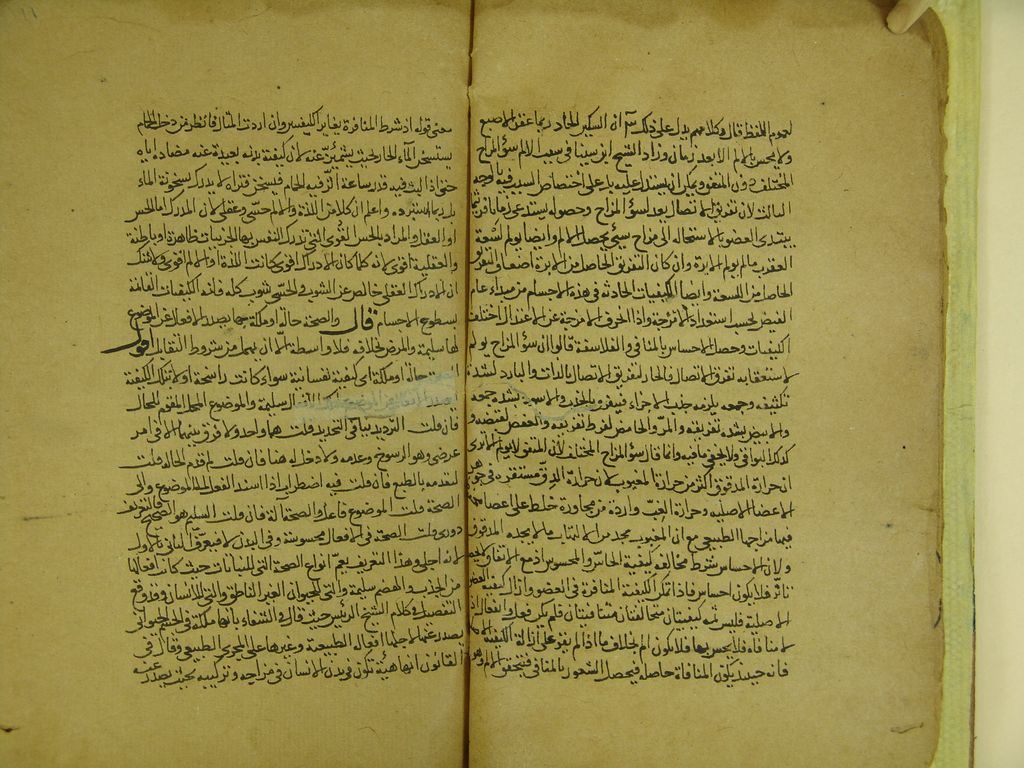 لعموم اللفظ قال وكلامهم يدل على ذلك ان السكين الحاد ربما عقر الاصبع
ولا يحس بالالم الا بعد زمان وزاد الشيخ ابن سينا في سبب الالم سوء المزاج
المختلف دون المتفق ويمكن ان يستدل عليه بل على اختصاص السبب فيه
الثالث لان تفرق الاتصال يعد لسوء المزاج وحصوله يستدعي زمانا
يبتدي العضو بالاستحالة الى مزاج سيئ يحصل الالم وايضا يولم لسعة
العقرب ما لم يولم الابرة وان كان التفريق الحاصل من الابرة اضعاف التفريق
الحاصل من اللسعة وايضا الكيفيات الحادثة في هذه الاجسام من مبداء عام
الفيض بحسب استعداد الامزجة واذا انحرف الامزجة عن الاعتدال اختلف
الكيفيات وحصل الاحساس بالمنافي والفلاسفة قالوا ان سوء المزاج يولم
لاستعقابه تفرق الاتصال فالحار لتفريق الاتصال بالذات والبارد لشدة
تكثيفه وجمعه يلزمه جذب الاجزاء فيتفرق والاسود لشدة جمعه
والابيض لشدة تفريقه والمر والحامض لفرط تفريقه والعفص لقبضه
كذلك البواقي ولا يخفى ما فيه وانما قال سوء المزاج المختلف لان المتفق لا يولم
ان حرارة المدقوق اكثر من حرارة المغبوب لان حرارة الدق مستقرة في جوهر
الاعضا الاصلية وحرارة الغب واردة من مجاورة خلط على اعضا
فيها مزاجها الطبيعي مع ان المغبوب يجد من الالتهاب ما لا يجده المدقوق
ولان الاحساس شرطه مخالفة كيفية الحاس والمحسوس اذ مع الاتفاق
تاثر فلا يكون احساس فاذا تمكن الكيفية المنافرة في العضو وازال كيفيته
الاصلية فليس ثمة كيفيتان متخالفتان متنافيتان فلم يكن فعل وانفعال اذ
لا منافاة فلا يحس بها فلا يكون الم بخلاف ما اذا لم يقو على ازالة الكيفية
فانه حينئذ يكون المنافاة حاصلة فيحصل الشعور بالمنافي فيتحقق الالم
معنى قوله اذ شرط المنافرة تغاير الكيفيتين وان اردت المثال فانظر من دخل الحمام
يستسخن الماء الحار بحيث يشمئز عنه لان كيفية بدنه بعيدة عنه مضادة اياه
حتى اذا لبث فيه قدر ساعة اثر فيه الحمام فيسخن فتراه لا يدرك سخونة الماء
بل ربما يستبرده واعلم ان كلا من اللذة والالم حسي وعقلي لان المدرك اما الحس
او العقل والمراد بالحس القوى التي تدرك النفس بها الجزييات ظاهرة او باطنة
والعقلية اقوى لانه كلما كان الادراك اقوى كانت اللذة او الالم اقوى ولا شك
ان الادراك العقلي خالص عن الشوب والحسي شوب كله فانه الكيفيات القائمة
بسطوح الاجسام قال والصحة حالة او ملكة بها يصدر الافعال عن الموضوع
لها سليمة والمرض بخلافه فلا واسطة الا ان يهمل من شروط التقابل اقول
الصحة حالة او ملكة اي كيفية نفسانية سواء كانت راسخة او لا بتلك الكيفية
يصدر الافعال سليمة والموضوع المحل المقوم للحال
فان قلت الترديد ينافي التحديد قلت هما واحد ولا فرق بينهما الا في امر
عرضي وهو الرسوخ وعدمه ولا دخل له هنا فان قلت لم قدم الحالة قلت
لتقدمه بالطبع فان قلت فيه اضطراب اذا اسند الفعل الى الموضوع والى
الصحة قلت الموضوع فاعل والصحة آلة فان قلت السليم هو الصحيح فالتعريف
دوري قلت الصحة في الافعال محسوسة وفي البدن لا فيعرف الثاني بالاول
لانه اجلى وهذا التعريف يعم انواع الصحة التي للنباتات حيث كان افعالها
من الجذب والهضم سليمة والتي للحيوان الغير الناطق والتي للانسان وقد وقع
التفصيل في كلام الشيخ الرئيس حيث قال في الشفاء بانها ملكة في الجسم الحيواني
يصدر عنها لاجلها افعاله الطبيعية وغيرها على المجرى الطبيعي وقال في
القانون انها هيئة تكون في بدن الانسان في مزاجه وتركيبه بحيث يصدر عنه